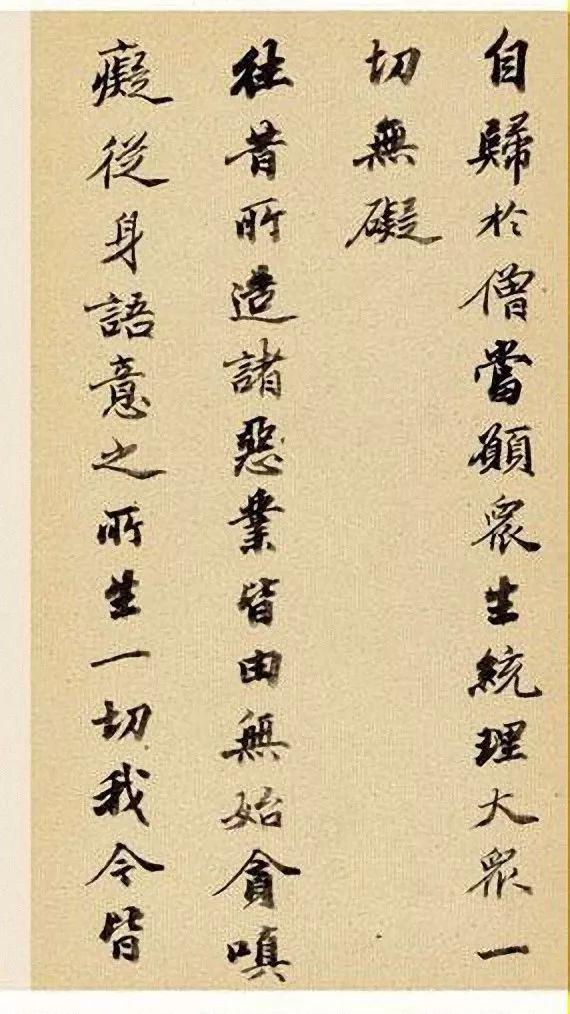 自歸於僧當願眾生統理大眾一
切無礙
往昔所造諸惡業皆由無始貪嗔
癡從身語意之所生一切我今皆